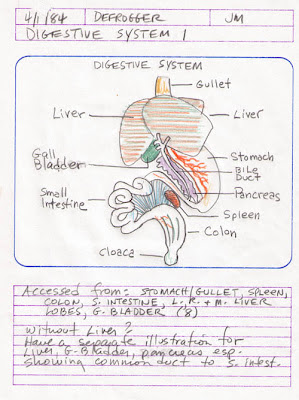 4/1/84 DEFROGGER JM
DIGESTIVE SYSTEM 1
DIGESTIVE SYSTEM
Gullet
Liver
Liver
Gall
Bladder
Stomach
Bile
Duct
Pancreas
Small
Intestine
Spleen
Colon
Cloaca
Accessed from: STOMACH/GULLET, SPLEEN,
COLON, S. INTESTINE, L., R. + M. LIVER
LOBES, G. BLADDER (8)
Without Liver?
Have a separate illustration for
Liver, G. Bladder, pancreas esp.
showing common duct to S. intest.